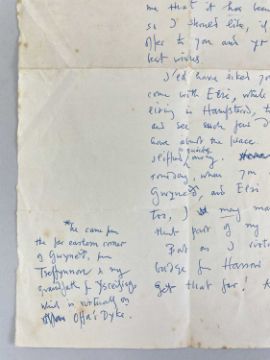 me that it has been
so I should like, if
offer to you and yr
best wishes
I'd have liked you
come with Elsi, while
living in Hampstead, to
and see such few
have about the place
someday, when you
Gwynedd, and Elsi
too, I may
that part of my
But as I
badge for Harrow
get that far!
*He came from
the far eastern corner
of Gwynedd, from
Treffynnon is my
grandfather for Ysceifiog
which is virtually on
Offa's Dyke.